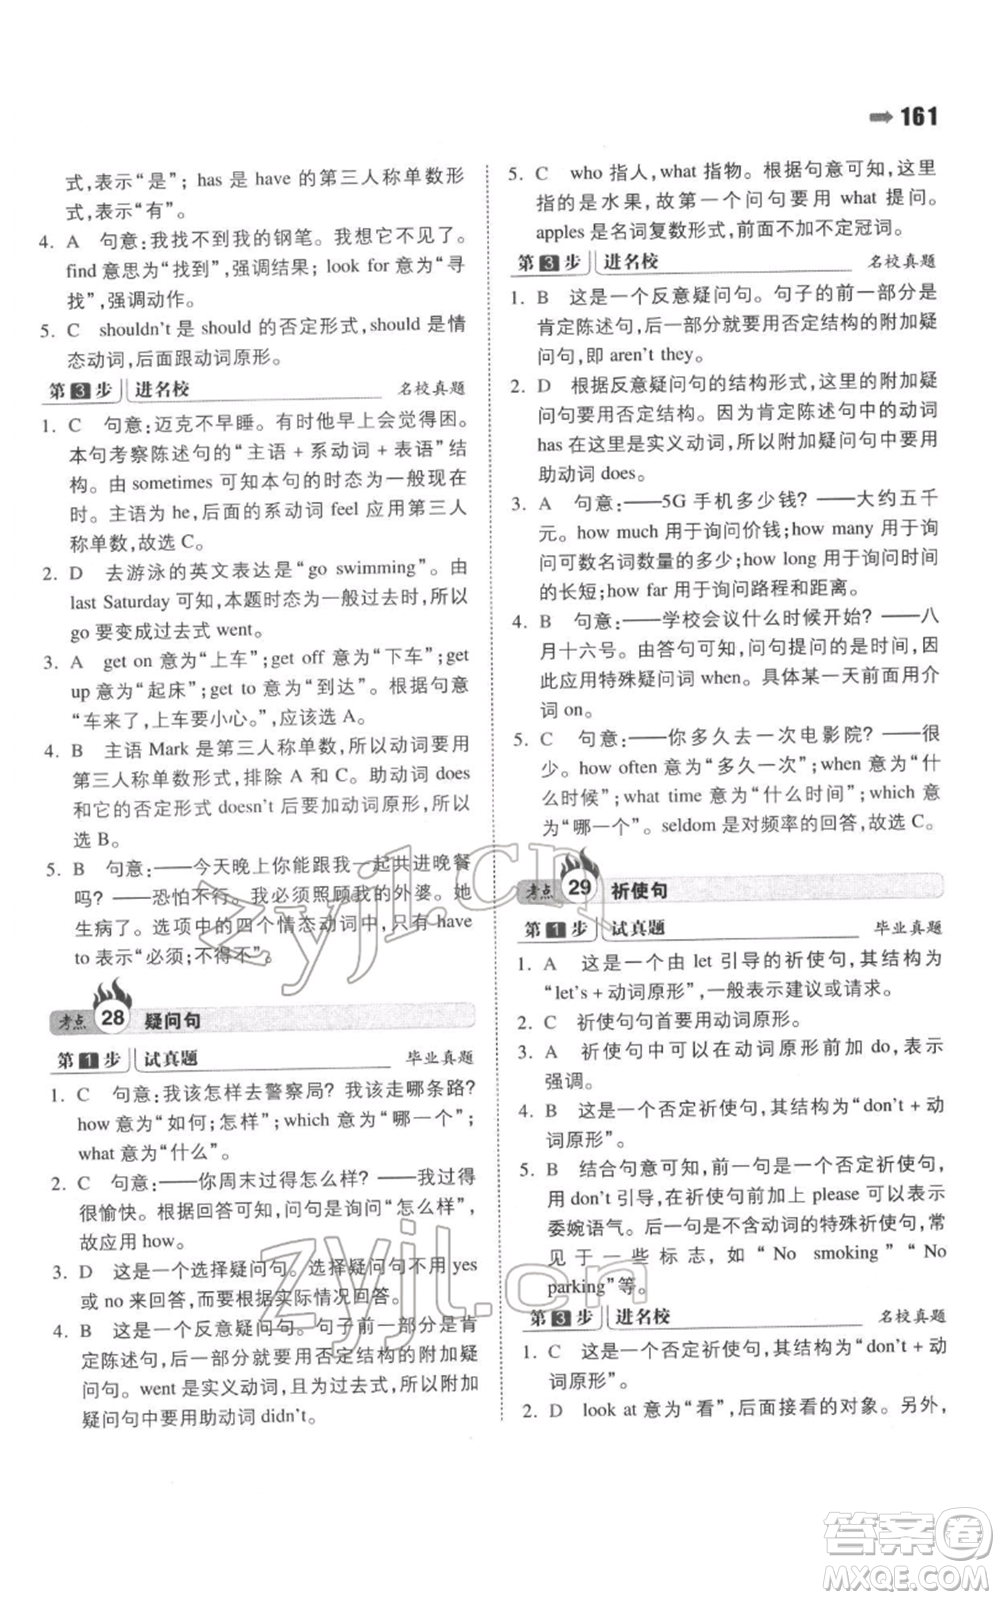 161
式,表示“是”;has 是 have 的第三人称单数形
式,表示“有”。
4. A 句意:我找不到我的钢笔。我想它不见了。
find 意思为“找到”,强调结果;look for 意为“寻
找”,强调动作。
5. C shouldn't 是 should 的否定形式,should 是情
态动词,后面跟动词原形。
第 3 步 进名校 名校真题
1. C 句意:迈克不早睡。有时他早上会觉得困。
本句考察陈述句的“主语 + 系动词 + 表语”结
构。由 sometimes 可知本句的时态为一般现在
时。主语为 he,后面的系动词 feel 应用第三人
称单数,故选 C。
2. D 去游泳的英文表达是“go swimming”。由
last Saturday 可知,本题时态为一般过去时,所以
go 要变成过去式 went。
3. A get on 意为“上车”;get off 意为“下车”;get
up 意为“起床”;get to 意为“到达”。根据句意
“车来了,上车要小心。”,应该选 A。
4. B 主语 Mark 是第三人称单数,所以动词要用
第三人称单数形式,排除 A 和 C。助动词 does
和它的否定形式 doesn't 后要加动词原形,所以
选 B。
5. B 句意:——今天晚上你能跟我一起共进晚餐
吗?——恐怕不行。我必须照顾我的外婆。她
生病了。选项中的四个情态动词中,只有 have
to 表示“必须;不得不”。
考点 28 疑问句
第 1 步 试真题 毕业真题
1. C 句意:我该怎样去警察局?我该走哪条路?
how 意为“如何;怎样”;which 意为“哪一个”;
what 意为“什么”。
2. C 句意:——你周末过得怎么样?——我过得
很愉快。根据回答可知,问句是询问“怎么样”,
故应用 how。
3. D 这是一个选择疑问句。选择疑问句不用 yes
或 no 来回答,而要根据实际情况回答。
4. B 这是一个反意疑问句。句子前一部分是肯
定陈述句,后一部分就要用否定结构的附加疑
问句。went 是实义动词,且为过去式,所以附加
疑问句中要用助动词 didn't。
5. C who 指人,what 指物。根据句意可知,这里
指的是水果,故第一个问句要用 what 提问。
apples 是名词复数形式,前面不加不定冠词。
第 3 步 进名校 名校真题
1. B 这是一个反意疑问句。句子的前一部分是
肯定陈述句,后一部分就要用否定结构的附加疑
问句,即 aren't they。
2. D 根据反意疑问句的结构形式,这里的附加疑
问句要用否定结构。因为肯定陈述句中的动词
has 在这里是实义动词,所以附加疑问句中要用
助动词 does。
3. A 句意:——5G 手机多少钱?——大约五千
元。how much 用于询问价钱;how many 用于询
问可数名词数量的多少;how long 用于询问时间
的长短;how far 用于询问路程和距离。
4. B 句意:——学校会议什么时候开始?——八
月十六号。由答句可知,问句提问的是时间,因
此应用特殊疑问词 when。具体某一天前面用介
词 on。
5. C 句意:——你多久去一次电影院?——很
少。how often 意为“多久一次”;when 意为“什
么时候”;what time 意为“什么时间”;which 意
为“哪一个”。seldom 是对频率的回答,故选 C。
考点 29 祈使句
第 1 步 试真题 毕业真题
1. A 这是一个由 let 引导的祈使句,其结构为
“let's + 动词原形”,一般表示建议或请求。
2. C 祈使句句首要用动词原形。
3. A 祈使句中可以在动词原形前加 do,表示
强调。
4. B 这是一个否定祈使句,其结构为“don't + 动
词原形”。
5. B 结合句意可知,前一句是一个否定祈使句,
用 don't 引导,在祈使句前加上 please 可以表示
委婉语气。后一句是不含动词的特殊祈使句,常
见于一些标志,如“No smoking”“No
parking”等。
第 3 步 进名校 名校真题
1. C 这是一个否定祈使句,其结构为“don't + 动
词原形”。
2. D look at 意为“看”,后面接看的对象。另外,
zyjl.cn
zyjl.cn
答案圈
MXQE.COM